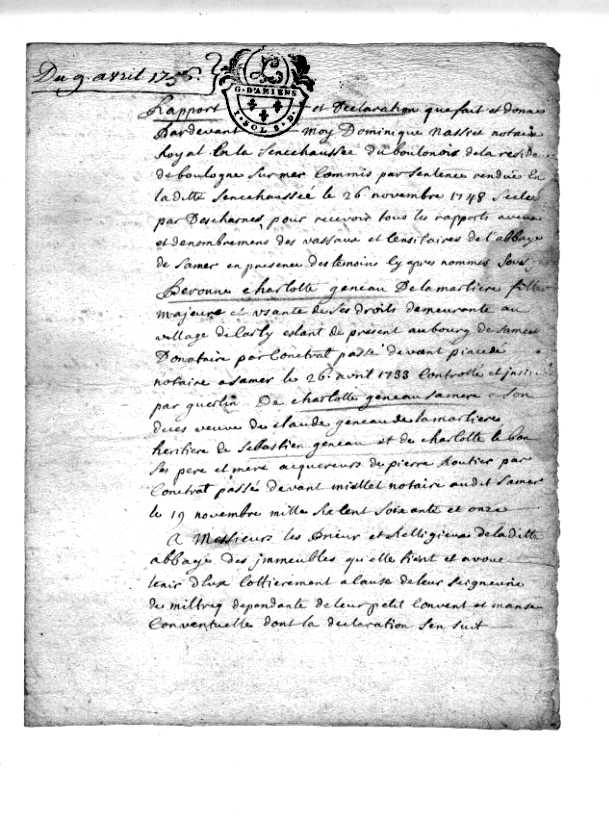 Du 9 avril 1756.
G. D'AMIENS
SOL. 8. D
Rapport et Declaration que fait et donne
Pardevant moy Dominique Nassée notaire
Royal En la Senechaussée du boulonois de la
de boulogne Sur mer Commis par Sentence rendue En
la ditte Senechaussée le 26 novembre 1748
par Descharnes pour recevoir tous les rapports aveux
et denombremens des vassaux et Censitaires de l'abbaye
de Samer en presence des temoins Cy apres nommés
Peronne charlotte geneau De lamartiere fille
majeure et usante de Ses droits demeurante au
village de Carly estant de present au bourg de Samer
Donataire par Contrat passé devant
notaire a Samer le 26 avril 1733 Controllé et
par quertin De charlotte geneau Sa mere a Son
deces veuve de claude geneau de lamartiere
heritiere de Sebastien geneau et de charlotte le bon
Ses pere et mere acquereurs de pierre Routier par
Contrat passé devant miellet notaire au dit Samer
le 19 novembre mille Six Cent Soixante et onze
A Messieurs les Prieur et Religieux de la ditte
abbaye des jmmeubles qu'elle tient et avoue
tenir D'Eux Cottierement a Cause de leur Seigneurie
de dependante de leur petit Convent et manse
Conventuelle dont la declaration S'en Suit